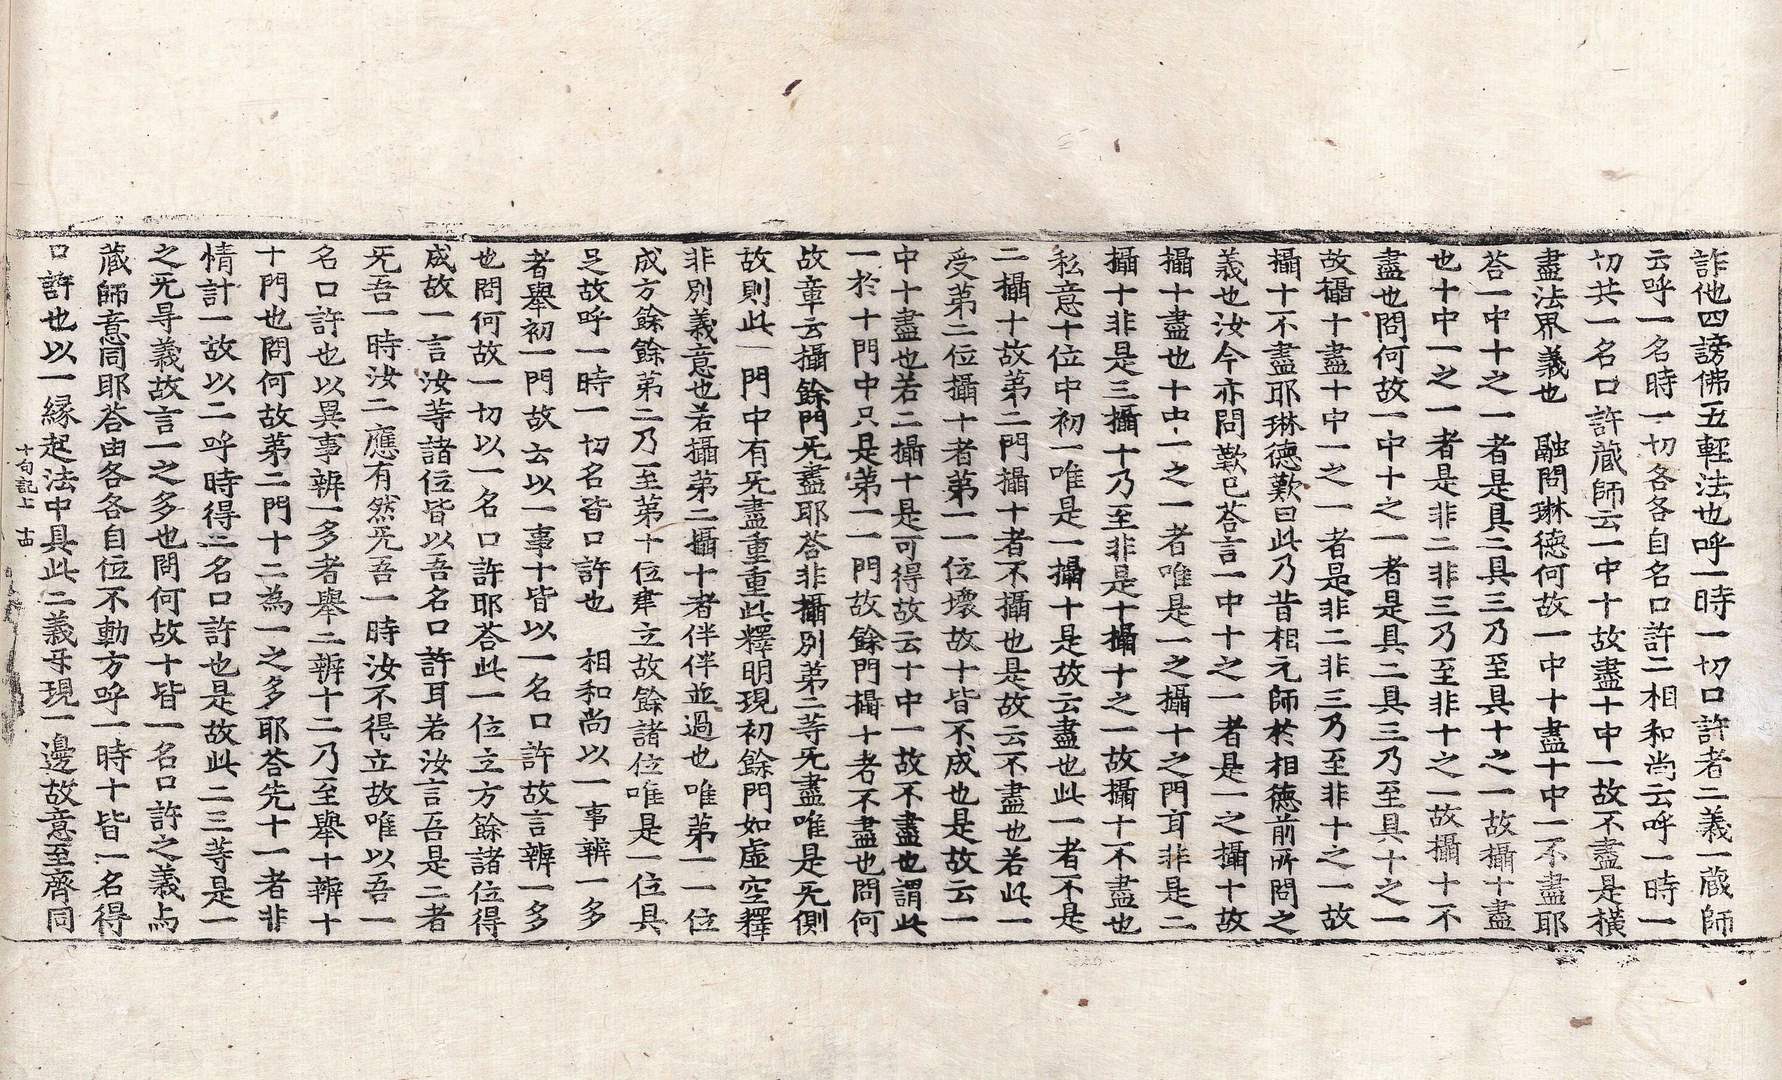 詐他四謗佛五輕法也呼一時一切口許者二義一蔵師
云呼一名時一切各各自名口許二相和尚云呼一時一
切共一名口許蔵師云一中十故盡十中一故不盡是横
盡法界義也　融問琳德何故一中十盡十中一不盡耶
荅一中十之一者是具二具三乃至具十之一故攝十盡
也十中一之一者是非二非三乃至非十之一故攝十不
盡也問何故一中十之一者是具二具三乃至具十之一
故攝十盡十中一之一者是非二非三乃至非十之一故
攝十不盡耶琳德歎曰此乃昔相元師於相德前所問之
義也汝今亦問歎已荅言一中十之一者是一之攝十故
攝十盡也十中一之一者唯是一之攝十之門耳非是二
攝十非是三攝十乃至非是十攝十之一故攝十不盡也
私意十位中初一唯是一攝十是故云盡也此一者不是
二攝十故第二門攝十者不攝也是故云不盡也若此一
受第二位攝十者第一一位壞故十皆不成也是故云一
中十盡也若二攝十是可得故云十中一故不盡也謂此
一於十門中只是第一一門故餘門攝十者不盡也問何
故章云攝餘門旡盡耶荅非攝別第二等旡盡唯是旡側
故則此一門中有旡盡重重此釋明現初餘門如虛空釋
非別義意也若攝第二攝十者伴伴並過也唯第一一位
成方餘餘第二乃至第十位聿立故餘諸位唯是一位具
足故呼一時一切名皆口許也　相和尚以一事辨一多
者舉初一門故云以一事十皆以一名口許故言辨一多
也問何故一切以一名口許耶荅此一位立方餘諸位得
成故一言汝等諸位皆以吾名口許耳若汝言吾是二者
旡吾一時汝二應有然旡吾一時汝不得立故唯以吾一
名口許也以異事辨一多者舉二辨十二乃至舉十辨十
十門也問何故第二門十二為一之多耶荅先十一者非
情計一故以二呼時得二名口許也是故此二三等是一
之旡㝵義故言一之多也問何故十皆一名口許之義与
蔵師意同耶荅由各各自位不動方呼一時十皆一名得
口許也以一緣起法中具此二義㝵現一邊故意至齊同
十句記上　十四